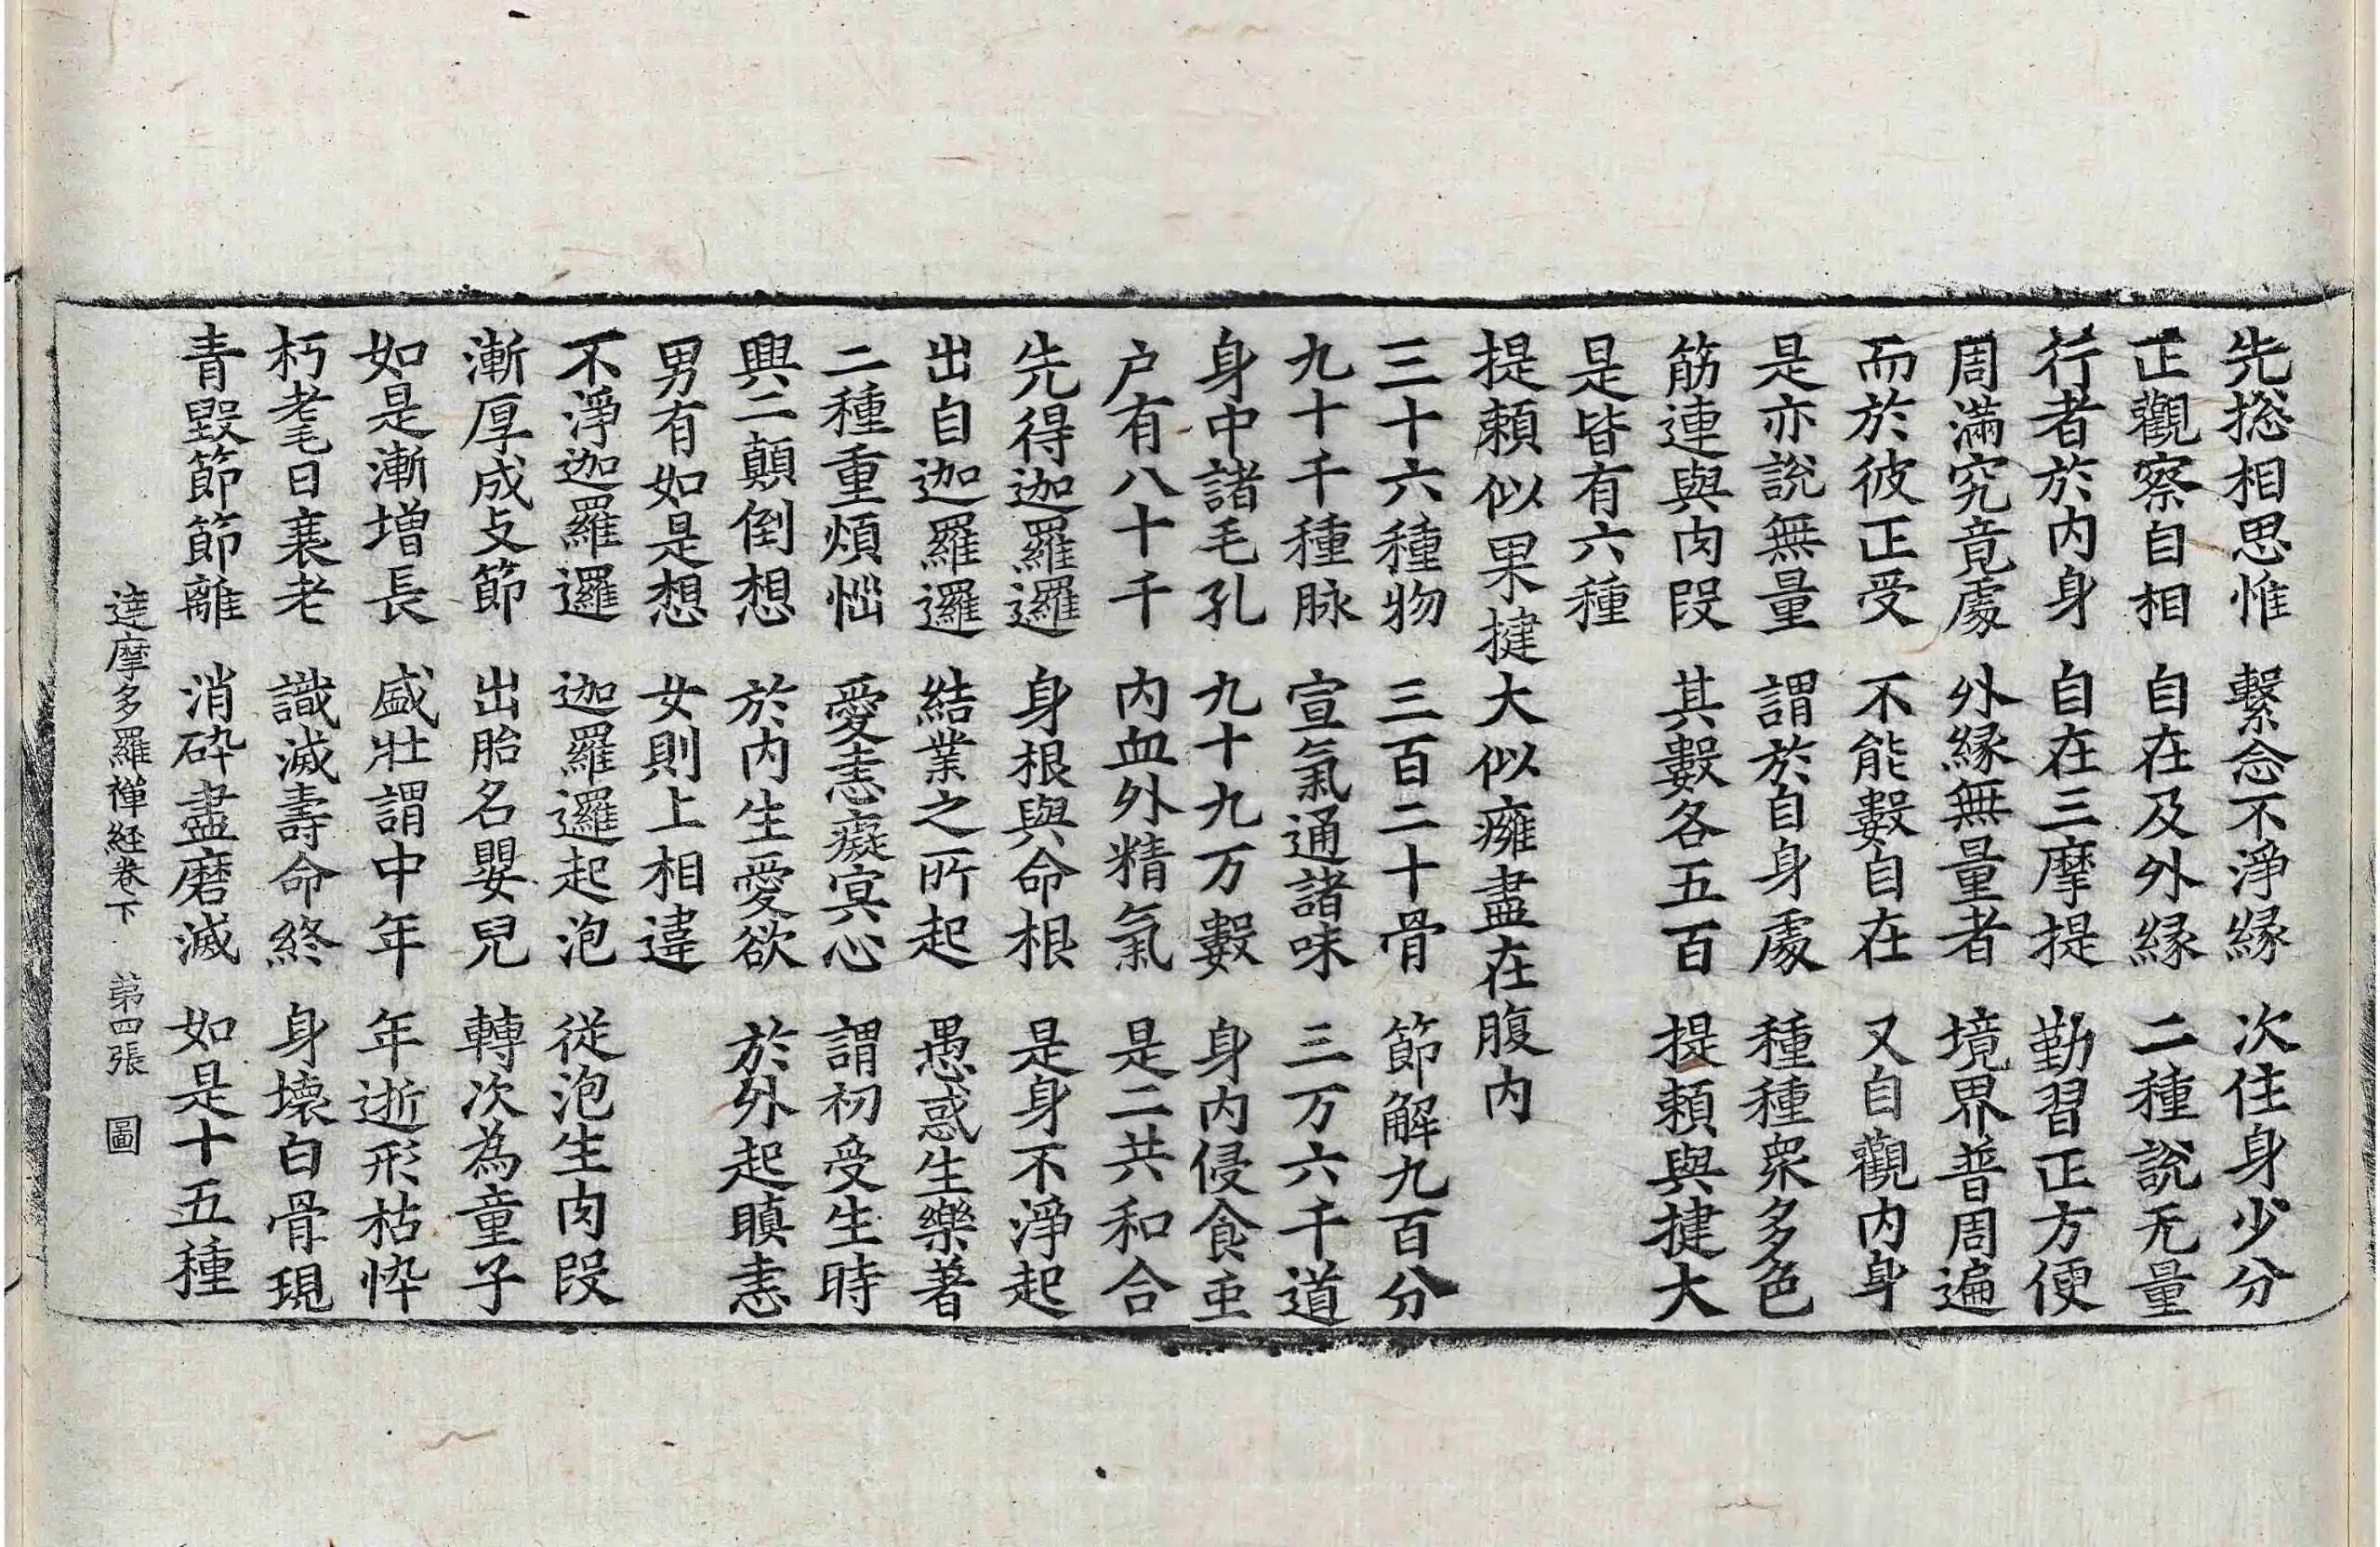 先捴相思惟　繫念不淨緣　次住身少分
正觀察自相　自在及外緣　二種說无量
行者於內身　自在三摩提　勤習正方便
周滿究竟處　外緣無量者　境界普周遍
而於彼正受　不能數自在　又自觀內身
是亦說無量　謂於自身處　種種衆多色
筋連與肉段　其數各五百　提頼與揵大
是皆有六種
提頼似果揵大似癰盡在腹內
三十六種物　三百二十骨　節解九百分
九十千種脉　宣氣通諸味　三万六千道
身中諸毛孔　九十九万數　身內侵食虫
户有八十千　內血外精氣　是二共和合
先得迦羅邏　身根與命根　是身不淨起
出自迦羅邏　結業之所起　愚惑生樂著
二種重煩惱　愛恚癡冥心　謂初受生時
興二顛倒想　於內生愛欲　於外起瞋恚
男有如是想　女則上相違
不淨迦羅邏　迦羅邏起泡　從泡生肉段
漸厚成支節　出胎名嬰兒　轉次為童子
如是漸增長　盛壯謂中年　年逝形枯悴
朽耄日衰老　識滅壽命終　身壞白骨現
青毀節節離　消碎盡磨滅　如是十五種
達摩多羅禪経卷下　第四張　圖